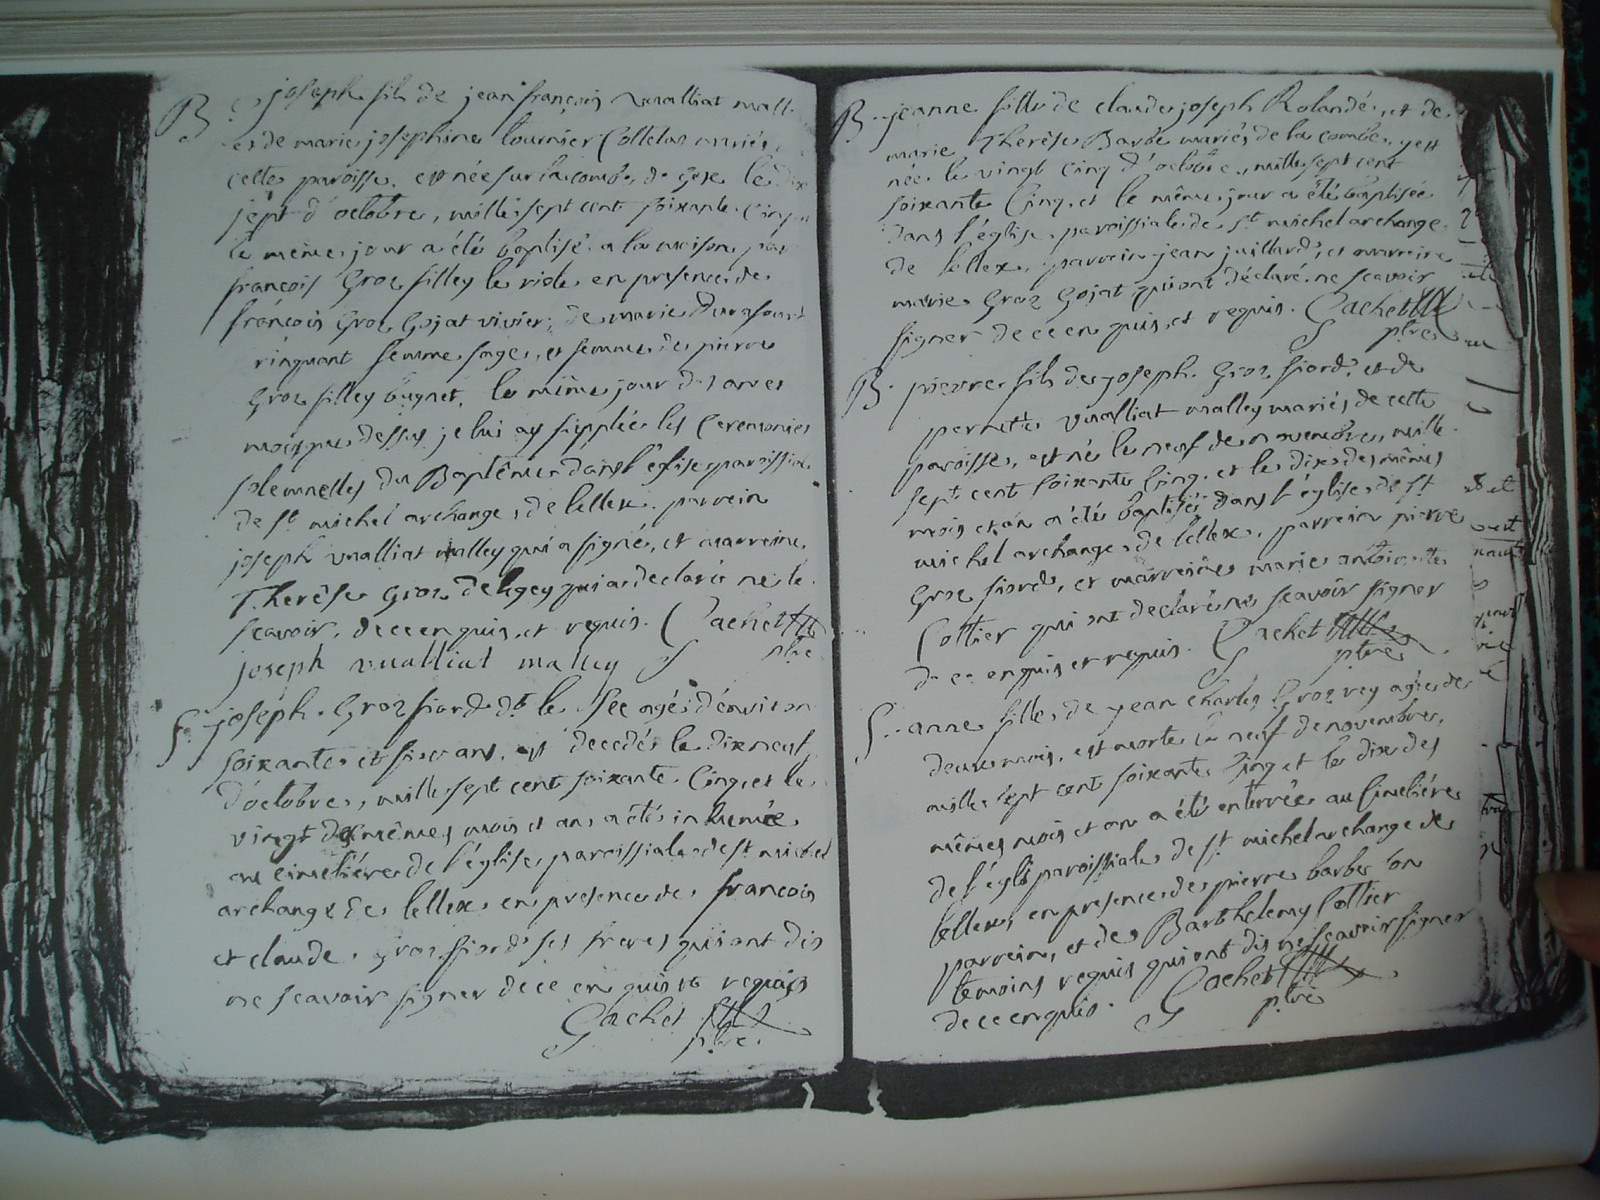 B. joseph fils de jean françois vualliat mall
et de marie josephine tournier Colletaz mariés
cette paroisse. est née sur la combe, de gex le dix
sept d'octobre, mille sept cent soixante. Cinq
le même, jour a été baptisé. a la maison, par
françois Groz filley le ride, en presence de
françois Groz Gojat vivier, de marie Durafourd
ringuant femme, sage, et femme, de, pierre
Groz filley bugnet, le même jour des
mois que dessus je lui ay supplée les Ceremonies
solemnelles du Baptême, dans l'église, paroissia
de st michel archange, de lellex. parrein
joseph vualliat malley qui a signé, et marreine,
Therèse Groz qui a declaré ne le
scavoir, de ce enquis, et requis. Cachet
ptre
joseph vualliat malley
S. joseph. Groz fiord dt le Sec agé, d'environ
soixante, et ans. est decedé, le dixneuf
d'octobre, mille sept cent soixante. Cinq, et le
vingt des mêmes mois et an a été inhumé
au cimetiére, de l'église, paroissiale, de st michel
archange de, lellex, en presence, de, francois
et claude, groz fiord ses freres qui ont dis
ne scavoir signer de ce enquis et requis
Cachet
ptre.
B. jeanne fille de claude, joseph Rolande, et de
marie Therèse Barbe mariés de la combe, yest
née le vingt cinq d'octobre, mille sept cent
soixante Cinq, et le même jour a été baptisée
dans l'église, paroissiale, de st michel archange,
de lellex, parrein jean juillard, et marreine
marie, Groz Gojat qui ont déclaré ne scavoir
signer de ce enquis, et requis. Cachet
ptre
B. pierre, fils de, joseph. Groz fiord, et de
pernete vualliat malley mariés de cette
paroisse, est né le neuf de novembre, mille
sept cent soixante Cinq, et le dix, des mêmes
mois et an a été baptisé dans l'église, de st
michel archange, de lellex, parrein pierre
Groz fiord, et marreine, marie antoinette
Cottier qui ont declaré ne scavoir signer
de ce enquis et requis. Cachet
ptre
S. anne fille, de jean charles Grozrey agée, de
deux mois, est morte le neuf de novembre,
mille, sept cent soixante Cinq et le dix des
mêmes mois et an a été enterrée au Cimetiére,
de l'églse paroissiale de st michel archange de
lellex, en presence, de, pierre barbe son
parrein, et de, Barthelemy Cottier
temoins requis qui ont dis ne scavoir signer
de ce enquis. Cachet
ptre